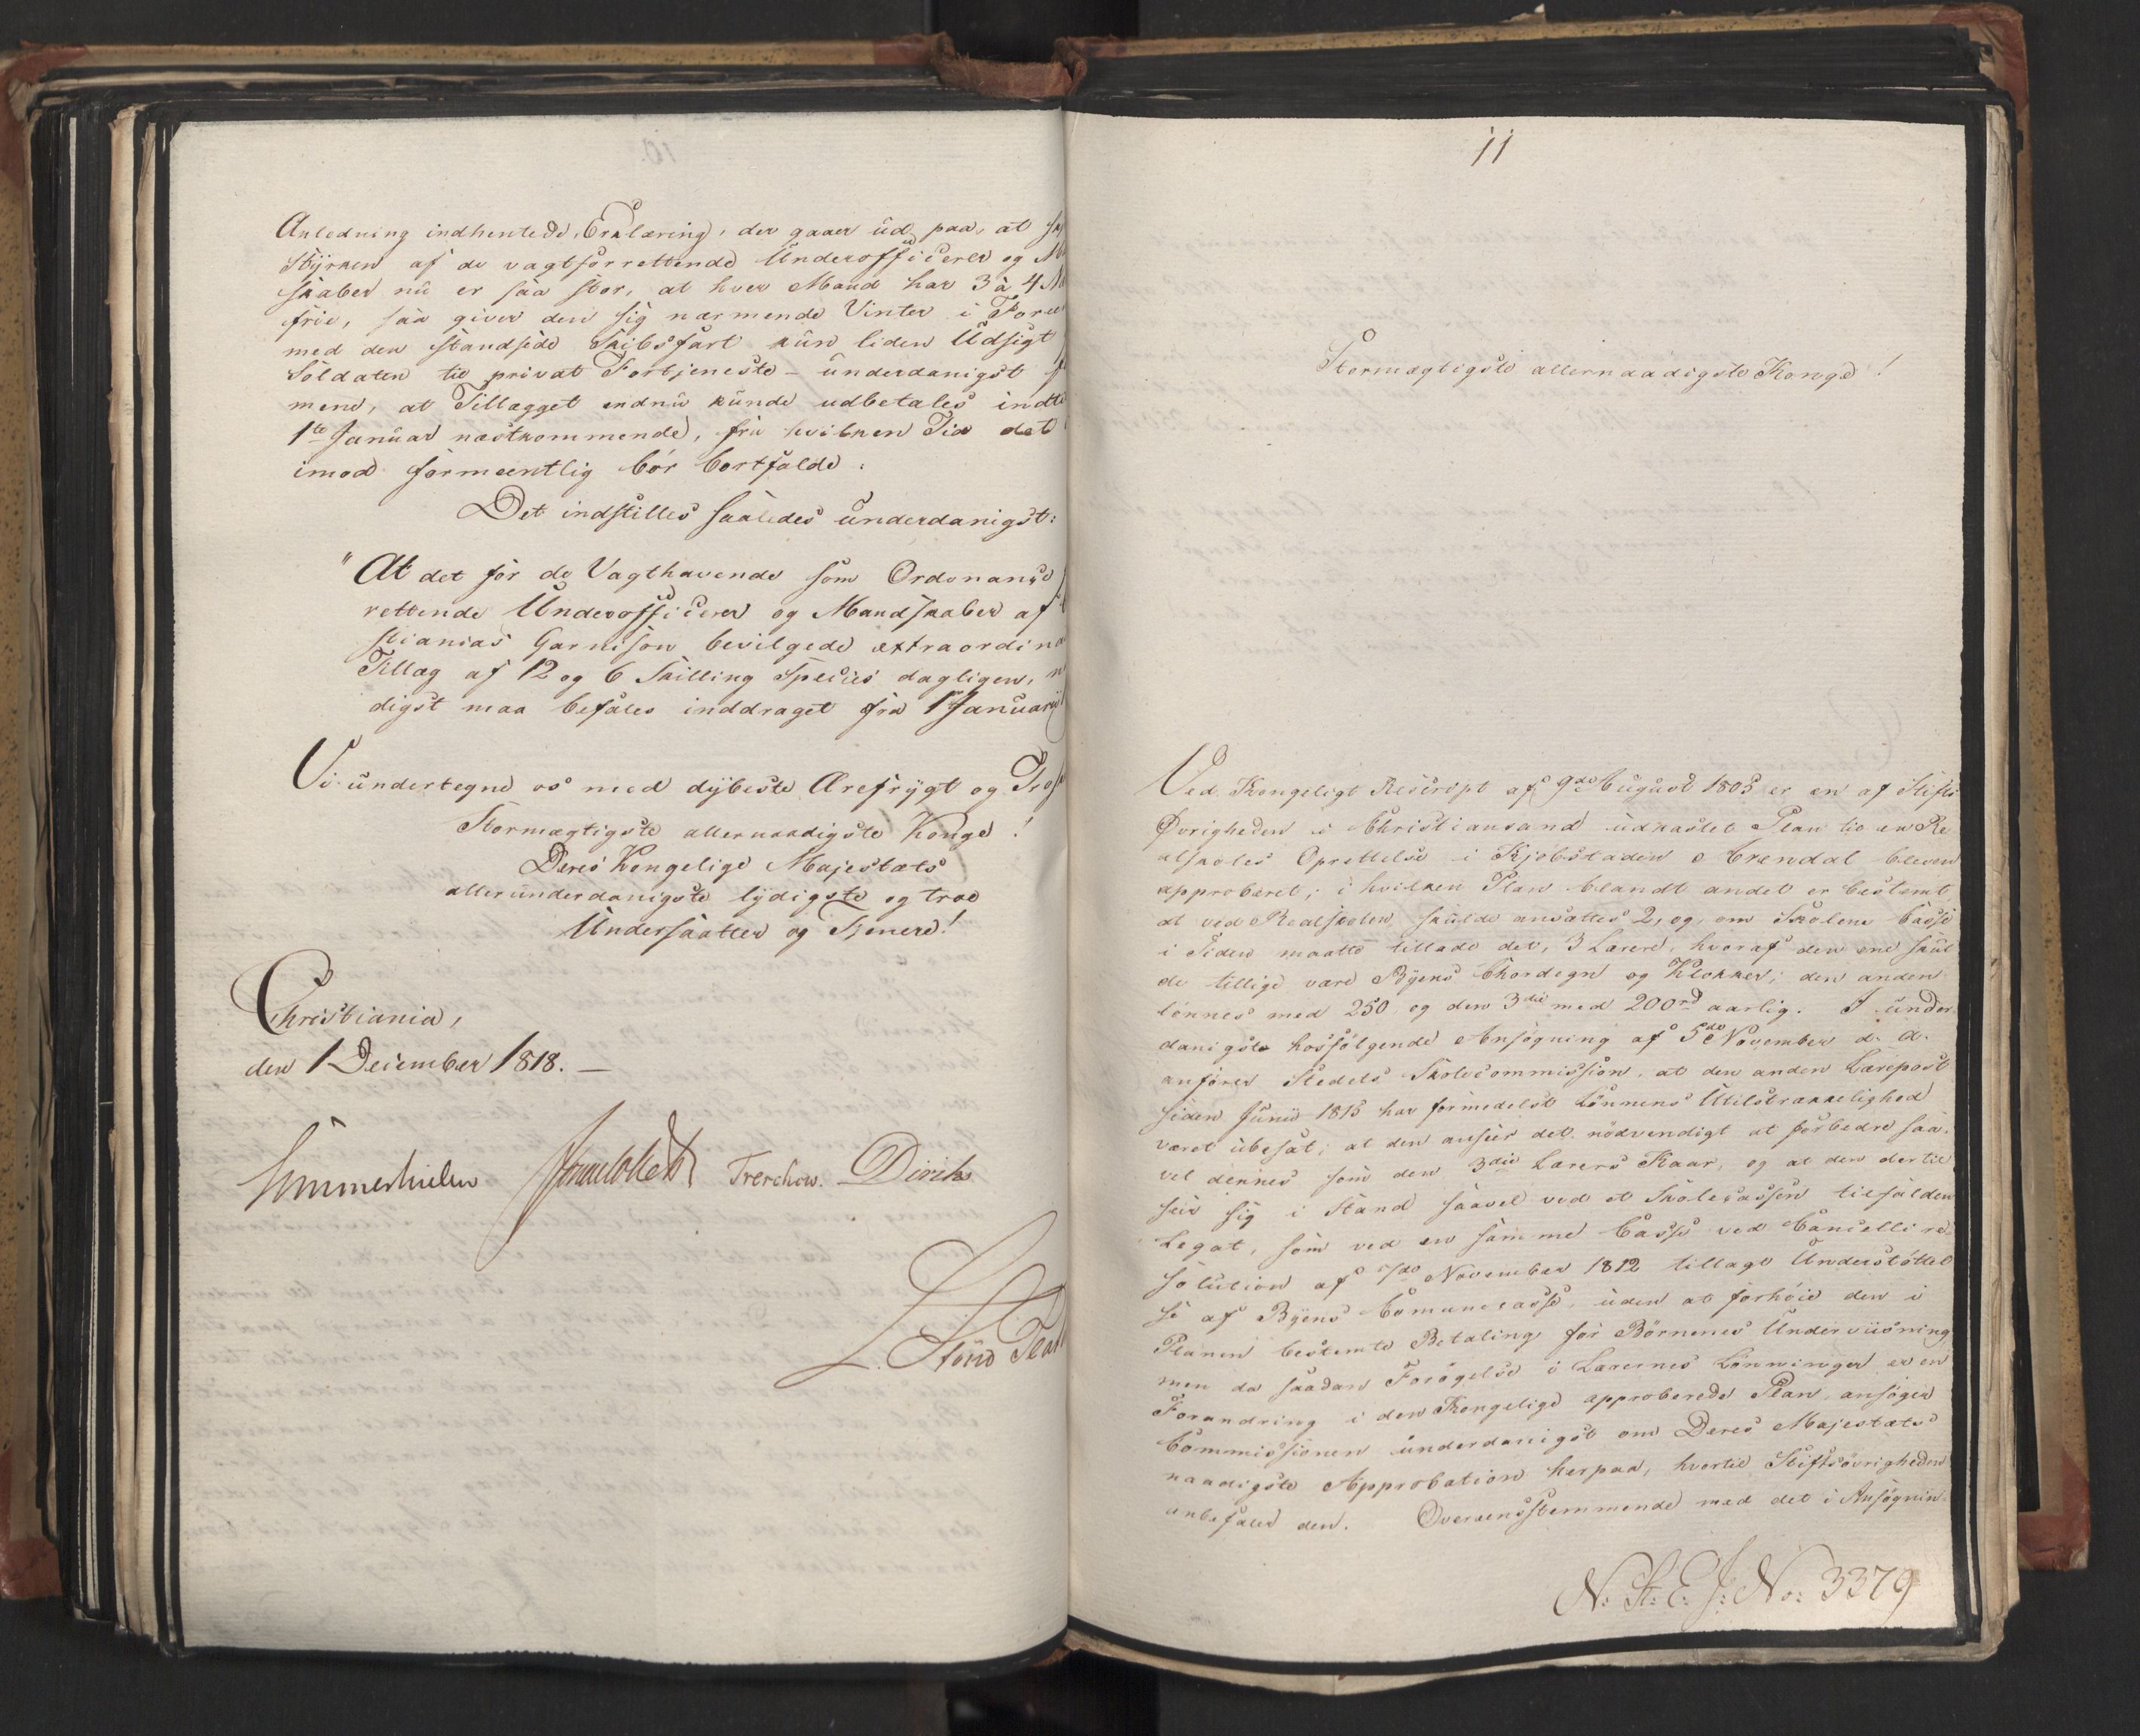 Anledning indhentede Erklæring, der gaaer ud paa, at
Styrken af de vagtforrettende Underofficerer og
skaber nu er saa stor, at hver Mand har 3 à 4
frie, saa giver den sig nærmende Vinter i
med den standsede Skibsfart kun liden Udsigt
Soldaten til privat Fortjeneste – underdanigst
mene, at Tillægget endnu kunde udbetales
1te Januar næstkommende, fra hvilken Tid det
imod formeentlig bør bortfalde.
Det indstilles saaledes underdanigst:
"At det for de Vagthavende som
rettende Underofficerer og Mandskaber af
stianias Garnison bevilgede extraordina
Tillæg af 12 og 6 Skilling Species dagligen,
digst maa befales inddraget fra 1 Januarii
Vi undertegne os med dybeste Ærefrygt og
Stormægtigste allernaadigste Konge!
Deres Kongelige Majestæts
allerunderdanigste lydigste og troe
Undersaatter og Tjenere!
Christiania,
den 1 December 1818. –
Sommerhielm Treschow. Diriks
11
Stormægtigste allernaadigste Konge!
Ved Kongeligt Rescript af 9de August 1805 er en af Stifts
Øvrigheden i Christiansand udkastet Plan til en Re
alskoles Oprettelse i Kjøbstaden Arendal bleven
approberet; i hvilken Plan blandt andet er bestemt
at ved Realskolen skulde ansættes 2, og, om Skolens Casse
i Tiden maatte tillade det, 3 Lærere, hvoraf den ene skul
de tillige være Byens Chordegn og Klokker; den anden
lønnes med 250 og den 3die med 200rd aarlig. I under
danigste hosfølgende Ansøgning af 5te November d. A.
anfører Stedets Skolecommission, at den anden Lærepost
siden Junii 1815 har formedelst Lønnens Utilstrækkelighed
været ubesat; at den anseer det nødvendigt at forbedre saa
vel dennes som den 3die Lærers Kaar, og at den dertil
seer sig i Stand saavel ved et Skolecassen tilfalden
Legat, som ved en samme Casse ved Cancelliere
solution af 7de November 1812 tillagt Understøttel
se af Byens Comunecasse, uden at forhøie den i
Planen bestemte Betaling for Børnenes Underviisning
men da saadan Forøgelse i Lærernes Lønninger er en
Forandring i den Kongelige approberede Plan, ansøger
Commissionen underdanigst om Deres Majestæts
naadigste Approbation herpaa, hvortil Stiftsøvrigheden
anbefaler den. Overeensstemmende med det i Ansøgnin
N: St: E: J: No: 3379